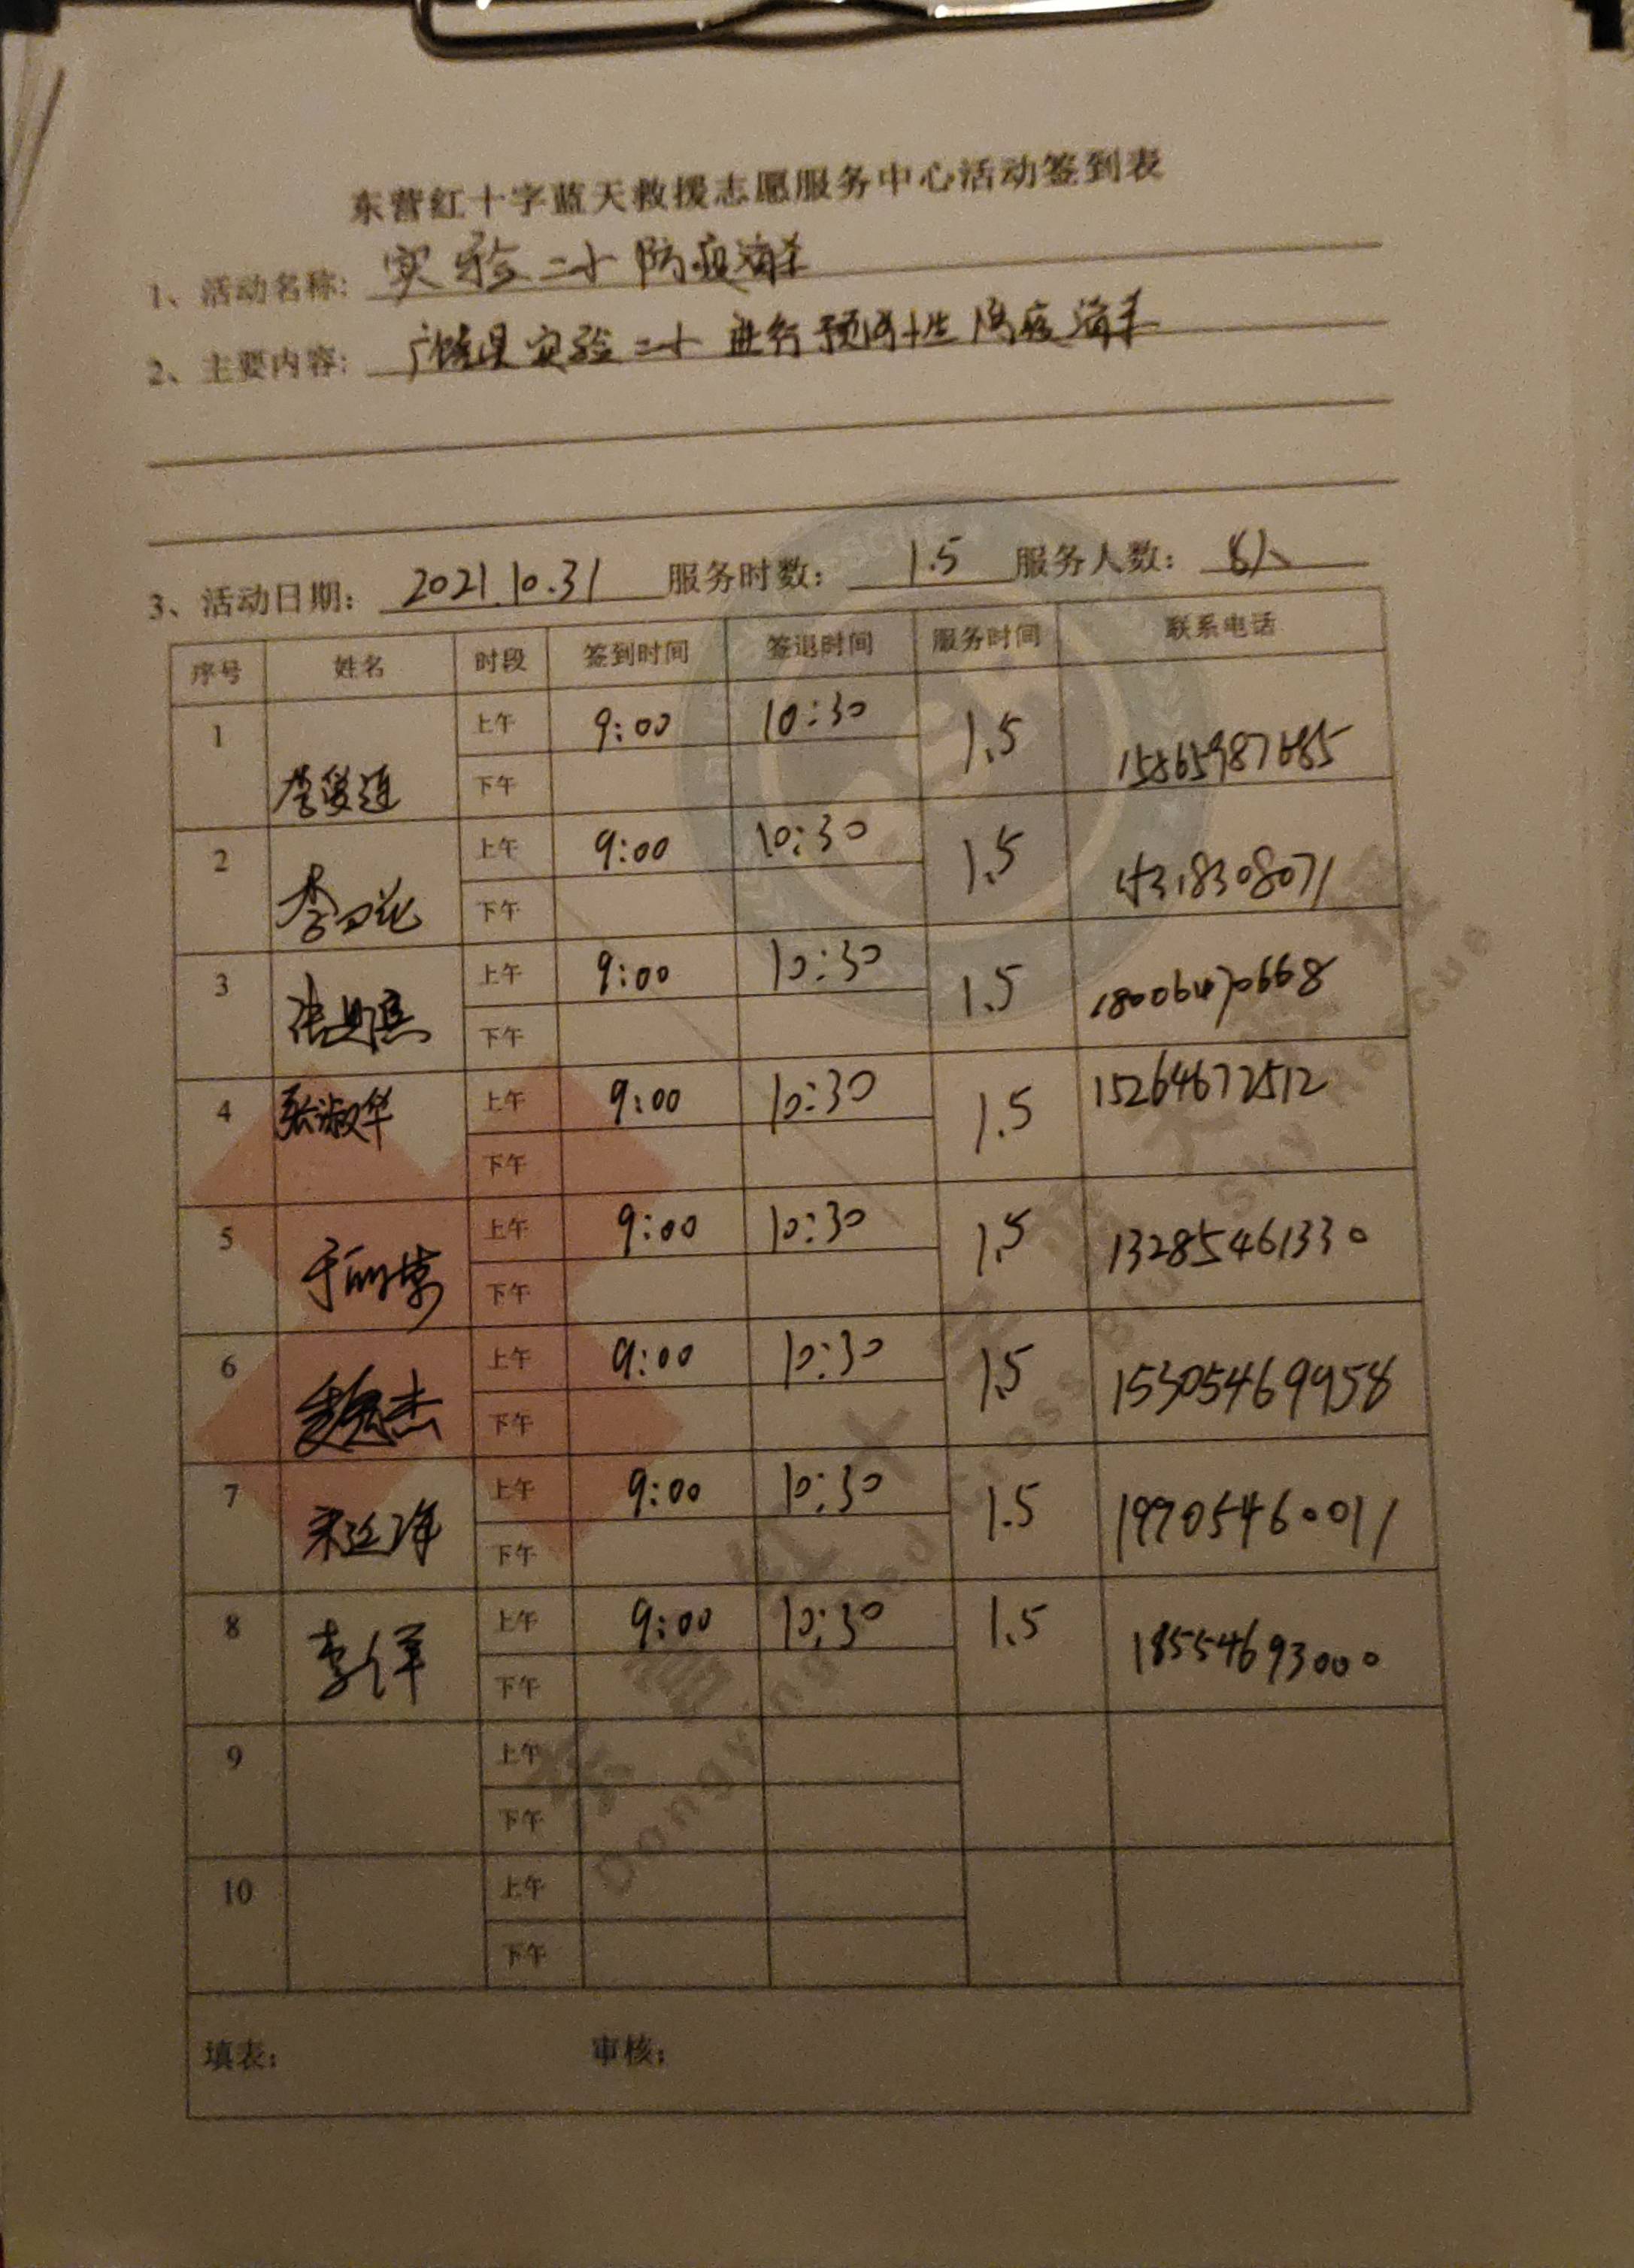 东营红十字蓝天救援志愿服务中心活动签到表
1、活动名称: 实验二小防疫消杀
2、主要内容: 广饶县实验二小进行预防性防疫消杀
3、活动日期: 2021.10.31 服务时数: 1.5 服务人数: 8人
序号 姓名 时段 签到时间 签退时间 服务时间 联系电话
1 上午 9:00 10:30 1.5 15865987685
下午
2 上午 9:00 10:30 1.5
下午
3 上午 9:00 10:30 1.5 18006470668
下午
4 张淑华 上午 9:00 10:30 1.5 15264672512
下午
5 上午 9:00 10:30 1.5 13285461330
下午
6 上午 9:00 10:30 1.5 15305469958
下午
7 上午 9:00 10:30 1.5 19905460011
下午
8 上午 9:00 10:30 1.5 18554693000
下午
9 上午
下午
10 上午
下午
填表: 审核:
东营红十字蓝天救援
Dongying Red Cross Blue Sky Rescue